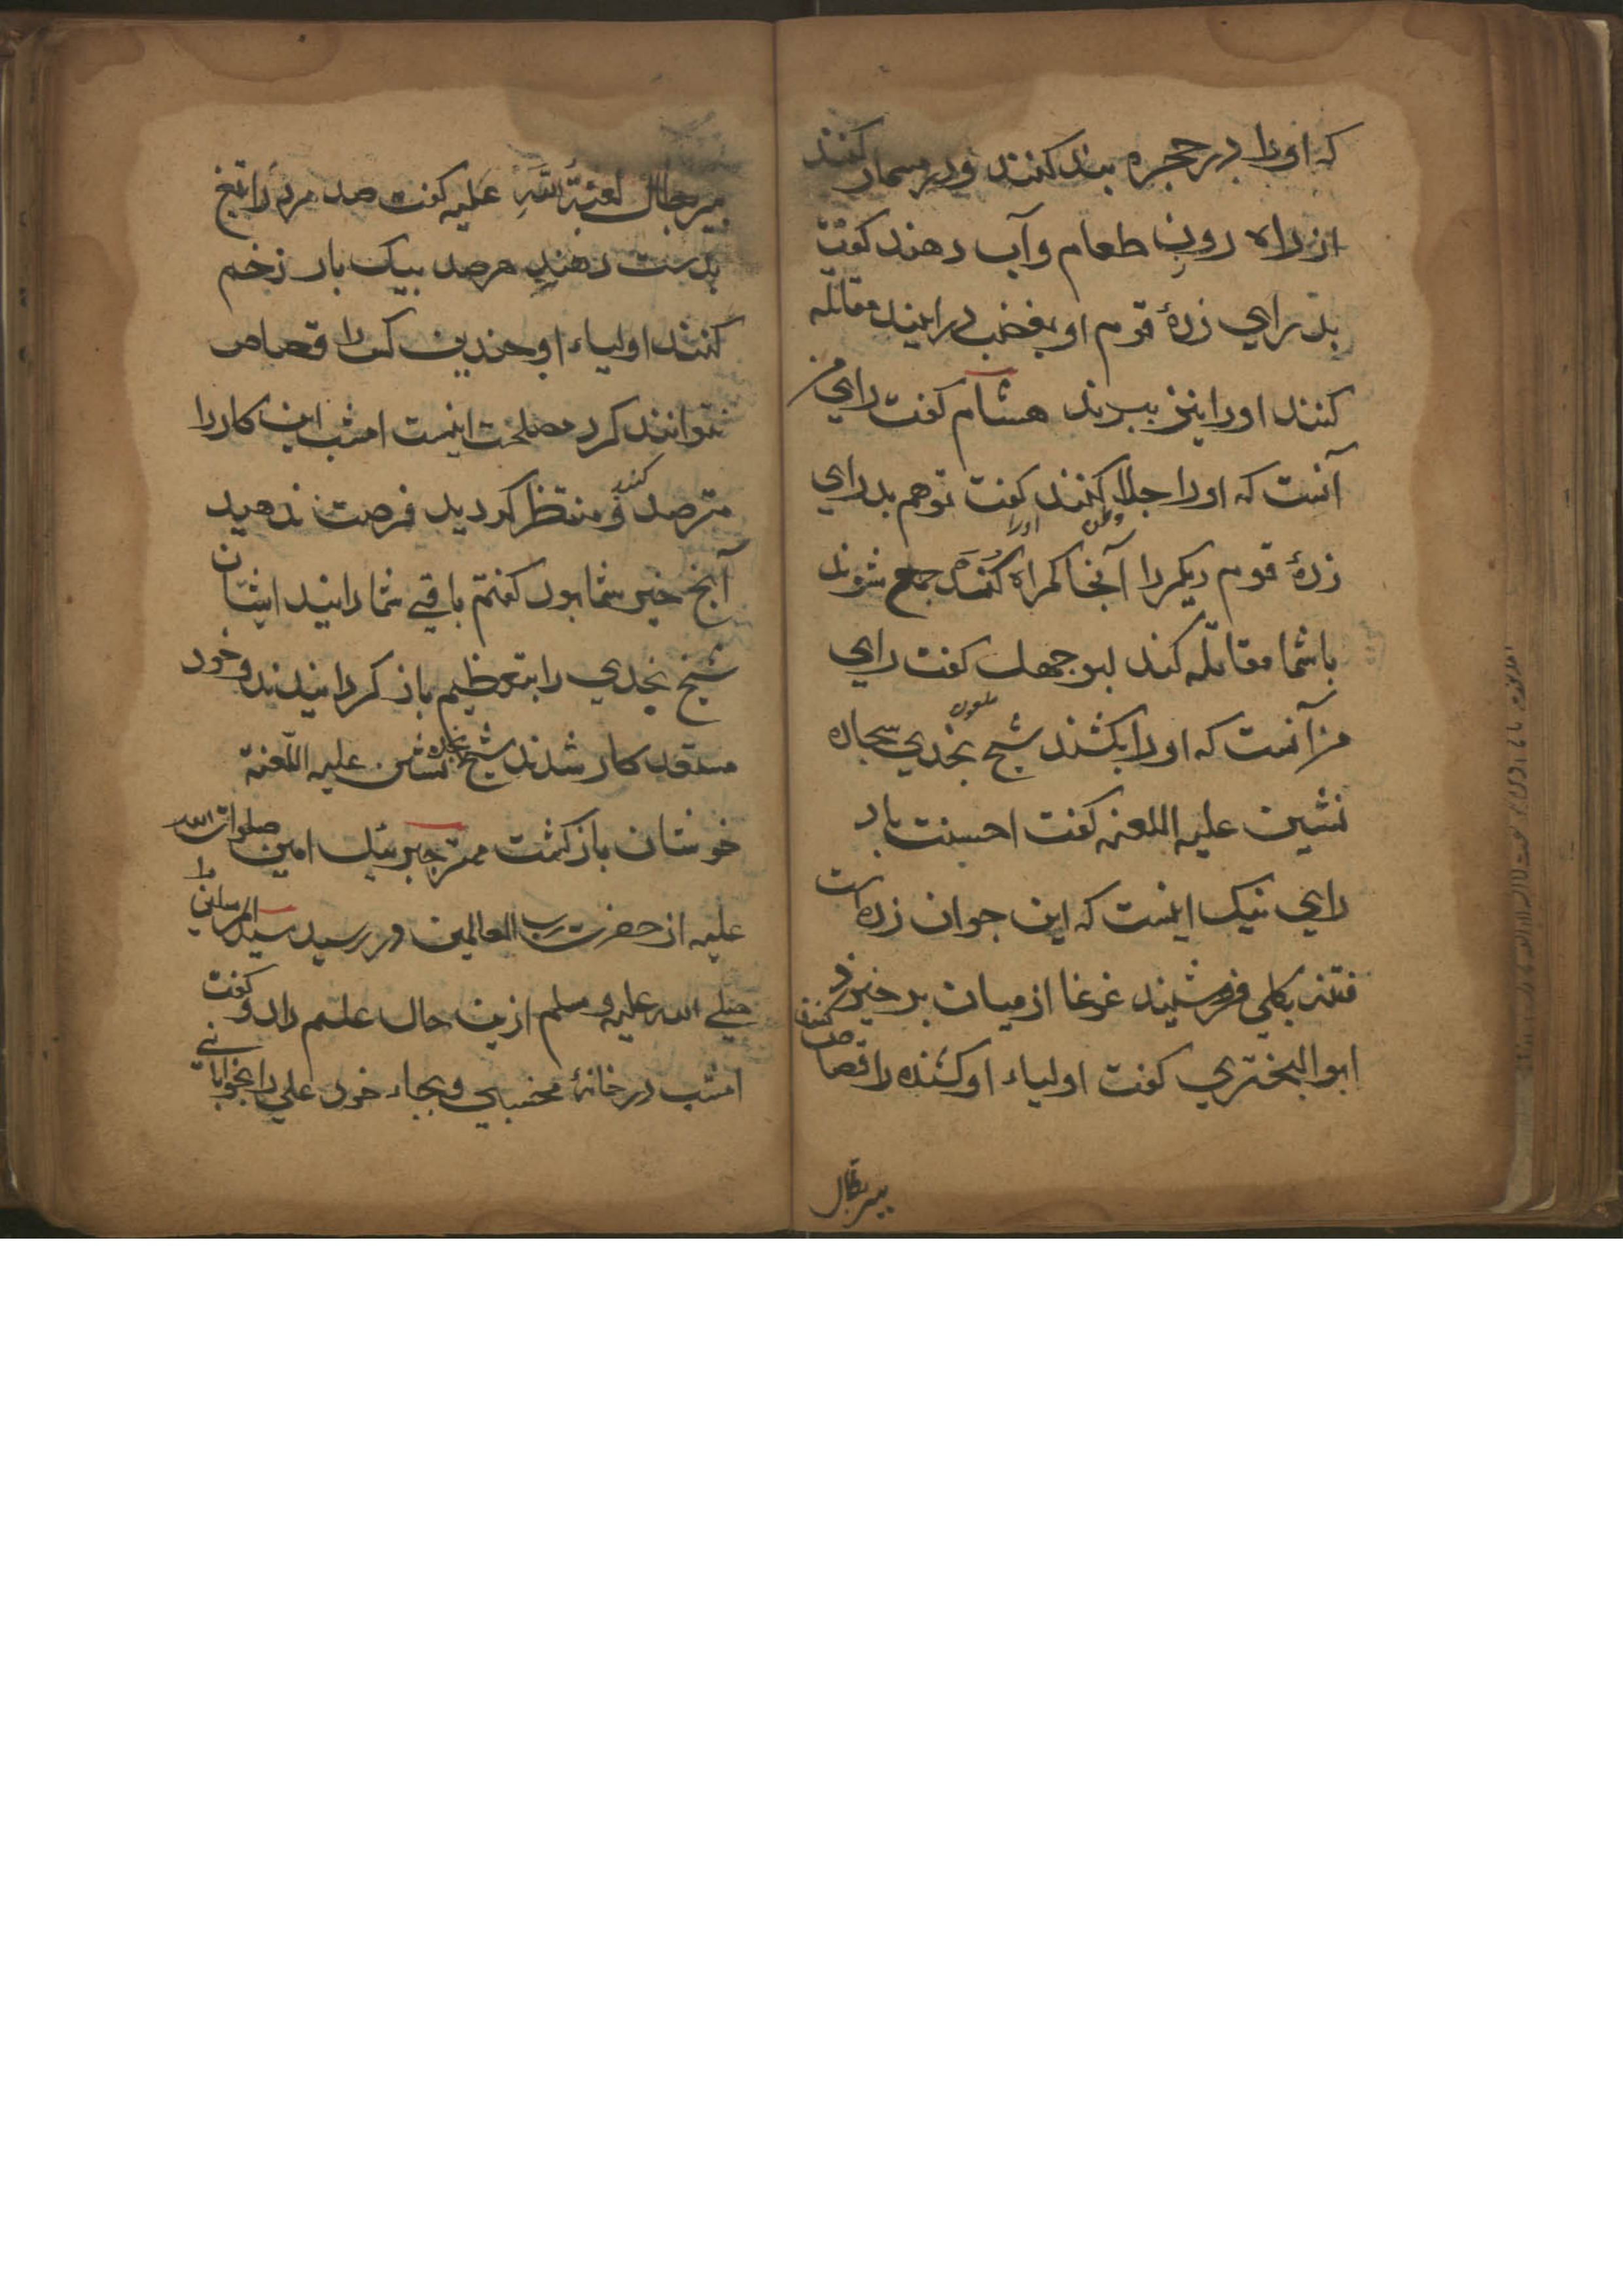 که اورا در حجره بند کنند و در مسمار کنند
از راه روزن طعام و آب دهند کفت
بد رایی زدهٔ قوم او بغضب درایند مقاتله
کنند اورا نیز ببرند هشام کفت رای من
آنست که اورا جلا کنند کفت تو هم بد رای
زدهٔ قوم دیکر را آنجا کمراه کند جمع شوند
باشما مقاتله کند لبوجهل کفت رای
من آنست که اورا بکشند شیخ نجدی ملعون سجاده
نشین علیه اللعنه کفت احسنت باد
رای نیک اینست که این جوان زده است
فتنه بکلی فرونشیند غوغا از میان بر خیزد
ابو البختری کفت اولیاء او کشنده را قصاص کنند
پیر دجال
پیر دجال لعنة الله علیه کفت صد مرد را تیغ
بدست دهند هر صد بیک بار زخم
کنند اولیاء او چندین کس را قصاص
نتوانند کرد مصلحت اینست امشب این کار را
مترصد کنید و منتظر کردید فرصت ندهید
آنچ خیر شما بود کفتم باقی شما دانید ایشان
شیخ نجدی را بتعظیم باز کردانیدند و خود
مستعد کار شدند شیخ نشین علیه اللعنة
خوشتان باز کشت مهتر جبرئیل امین صلوات الله
علیه از حضرت رب العالمین در رسید سید المرسلین را
صلی الله علیه و سلم ازین حال علم داد و کفت
امشب در خانهٔ مخسبای و بجاء خود علی را بخوابانی